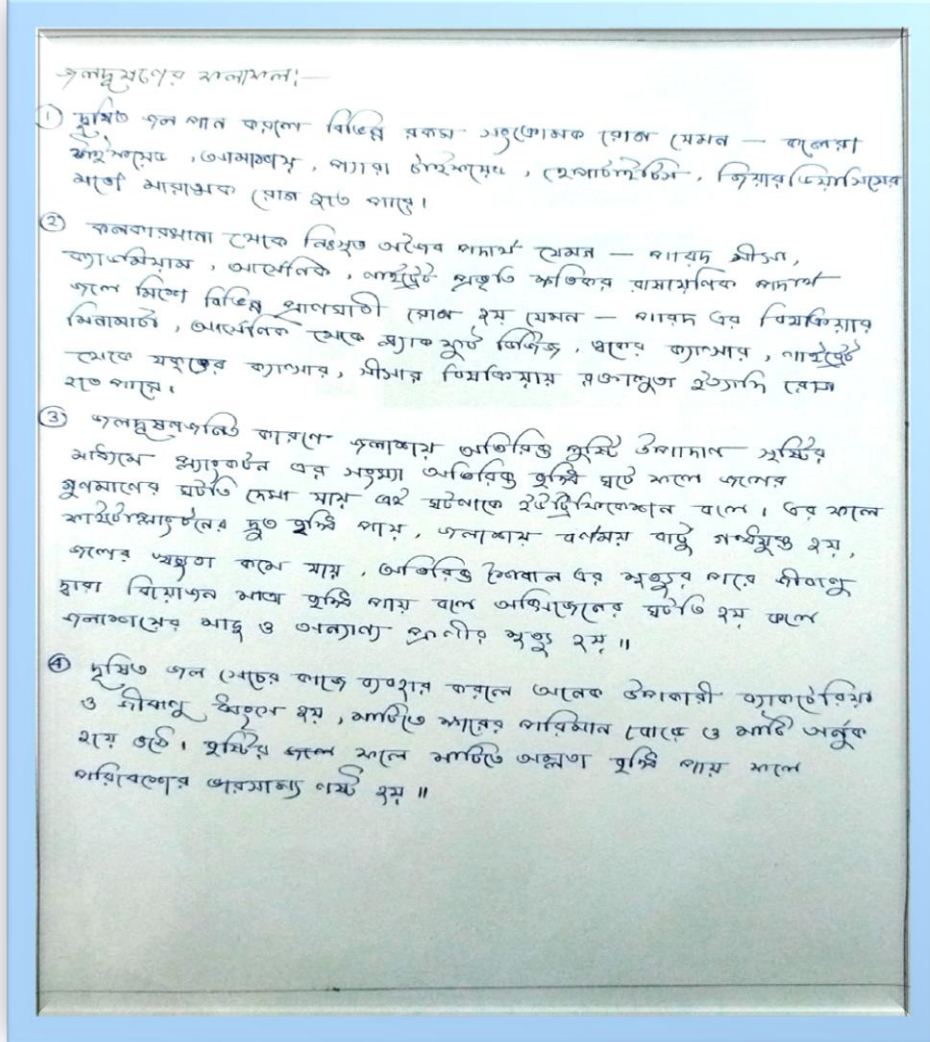 জলদূষণের ফলাফল:—
① দূষিত জল পান করলে বিভিন্ন রকম সংক্রামক রোগ যেমন — কলেরা
টাইফয়েড, আমাশয়, প্যারা টাইফয়েড, হেপাটাইটিস, জিয়ারডিয়াসিসের
মতো মারাত্মক রোগ হতে পারে।
② কলকারখানা থেকে নিঃসৃত অজৈব পদার্থ যেমন — পারদ সীসা,
ক্যাডমিয়াম, আর্সেনিক, নাইট্রেট প্রভৃতি ক্ষতিকর রাসায়নিক পদার্থ
জলে মিশে বিভিন্ন প্রাণঘাতী রোগ হয় যেমন — পারদ এর বিষক্রিয়ার
মিনামাটা, আর্সেনিক থেকে ব্ল্যাক ফুট ডিজিজ, ত্বকের ক্যান্সার, নাইট্রেট
থেকে যকৃতের ক্যান্সার, সীসার বিষক্রিয়ায় রক্তাল্পতা ইত্যাদি রোগ
হতে পারে।
③ জলদূষনজনিত কারণে জলাশয় অতিরিক্ত পুষ্টি উপাদান সৃষ্টির
মাধ্যমে প্ল্যাংকটন এর সংখ্যা অতিরিক্ত বৃদ্ধি ঘটে ফলে জলের
গুণমানের ঘাটতি দেখা যায় এই ঘটনাকে ইউট্রিফিকেশান বলে। এর ফলে
ফাইটোপ্লাংটনের দ্রুত বৃদ্ধি পায়, জলাশয় বর্ণময় বাটু গন্ধযুক্ত হয়,
জলের স্বচ্ছতা কমে যায়, অতিরিক্ত শৈবাল এর মৃত্যুর পরে জীবাণু
দ্বারা বিয়োজন মাত্রা বৃদ্ধি পায় বলে অক্সিজেনের ঘাটতি হয় ফলে
জলাশয়ের মাছ ও অন্যান্য প্রাণীর মৃত্যু হয়॥
④ দূষিত জল সেচের কাজে ব্যবহার করলে অনেক উপকারী ব্যাকটেরিয়া
ও জীবাণু ধ্বংস হয়, মাটিতে ক্ষারের পরিমান বাড়ে ও মাটি অর্নুবক
হয়ে ওঠে। বৃষ্টির জলে ফলে মাটিতে অম্লতা বৃদ্ধি পায় ফলে
পরিবেশের ভারসাম্য নষ্ট হয়॥